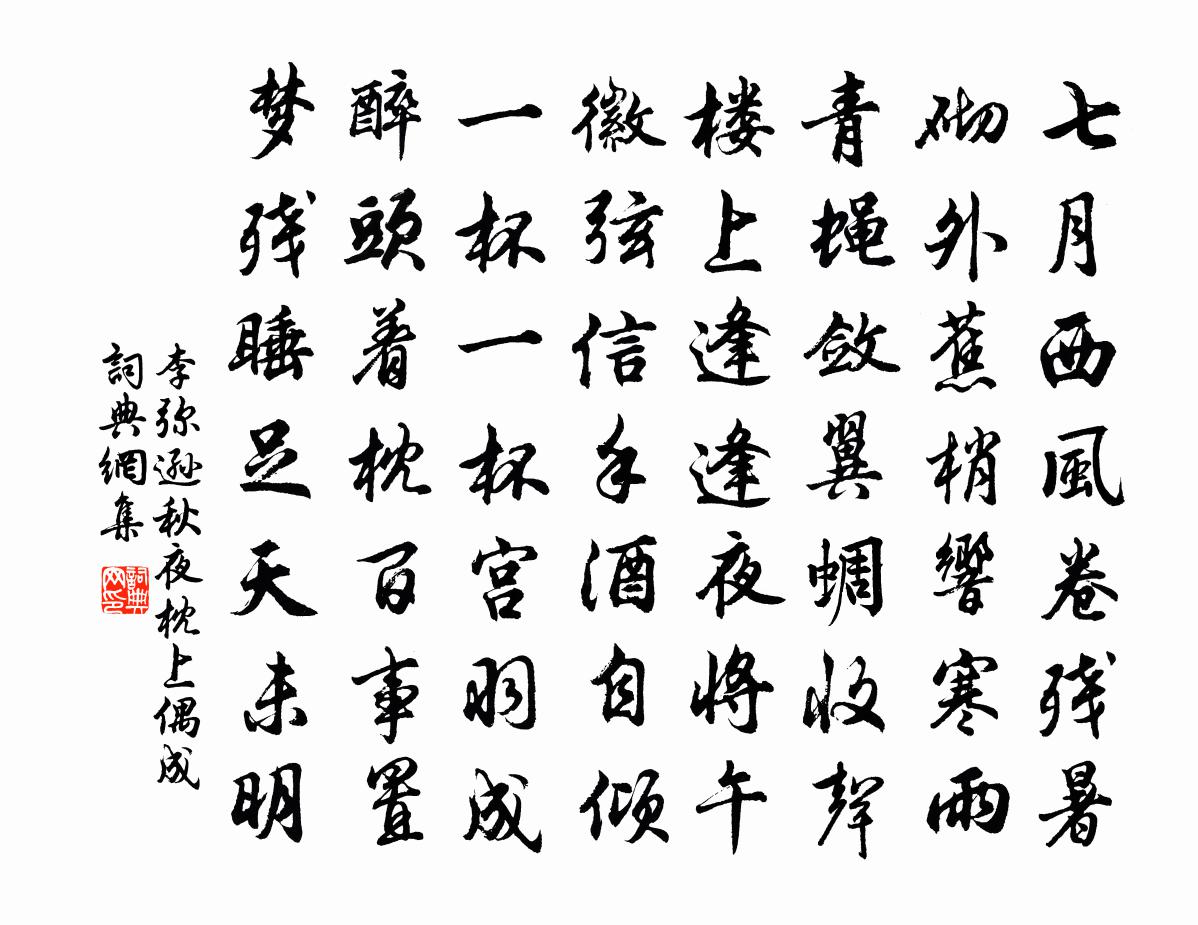 七月西風卷残暑
砌外蕉梢響寒雨
青蝇斂翼蜩收聲
楼上逢逢夜将午
徽弦信手酒自倾
一杯一杯宫羽成
醉頭着枕百事置
梦残睡足天未明
李弥逊秋夜枕上偶成
詞典網集
詞典网印